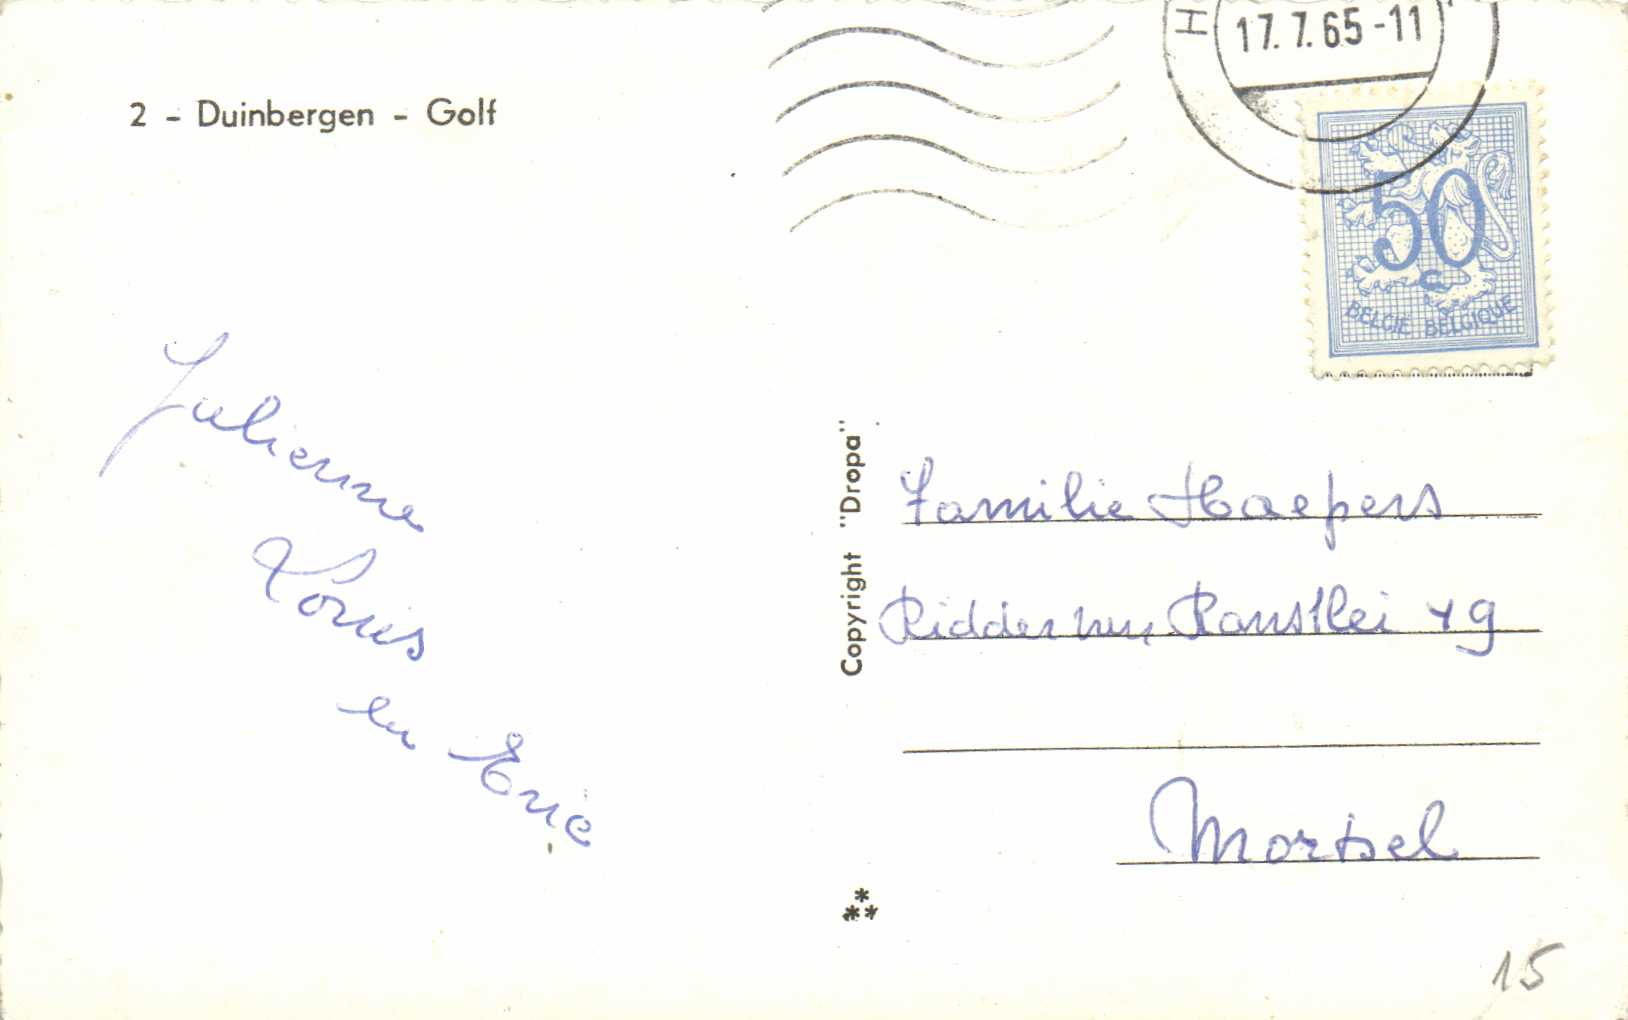 2 - Duinbergen - Golf
H
17.7.65-11
50
c
BELGIE BELGIQUE
Julienne
Louis
en Eric
Copyright "Dropa"
Familie Haepers
Ridder van Ranstlei 49
Mortsel
15